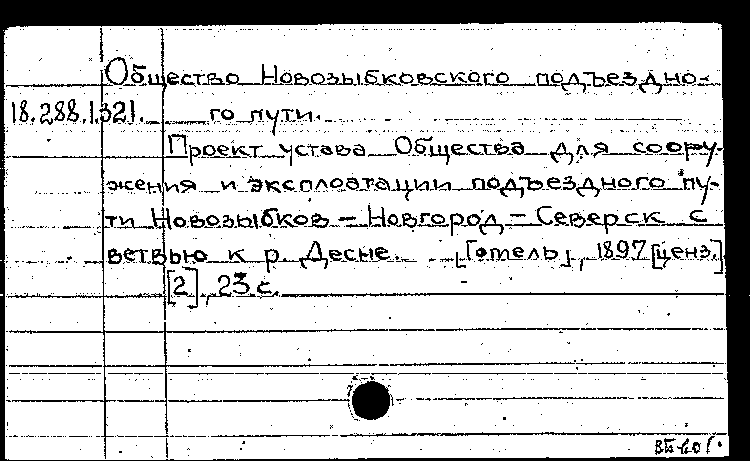 Общество Новозыбковского подъездно-
18.288.1.321. го пути.
Проект устава Общества для соору-
жения и эксплоатации подъездного пу-
ти Новозыбков – Новгород – Северск с
ветвью к р. Десне. [Гомель], 1897 [ценз.]
[2], 23 с.